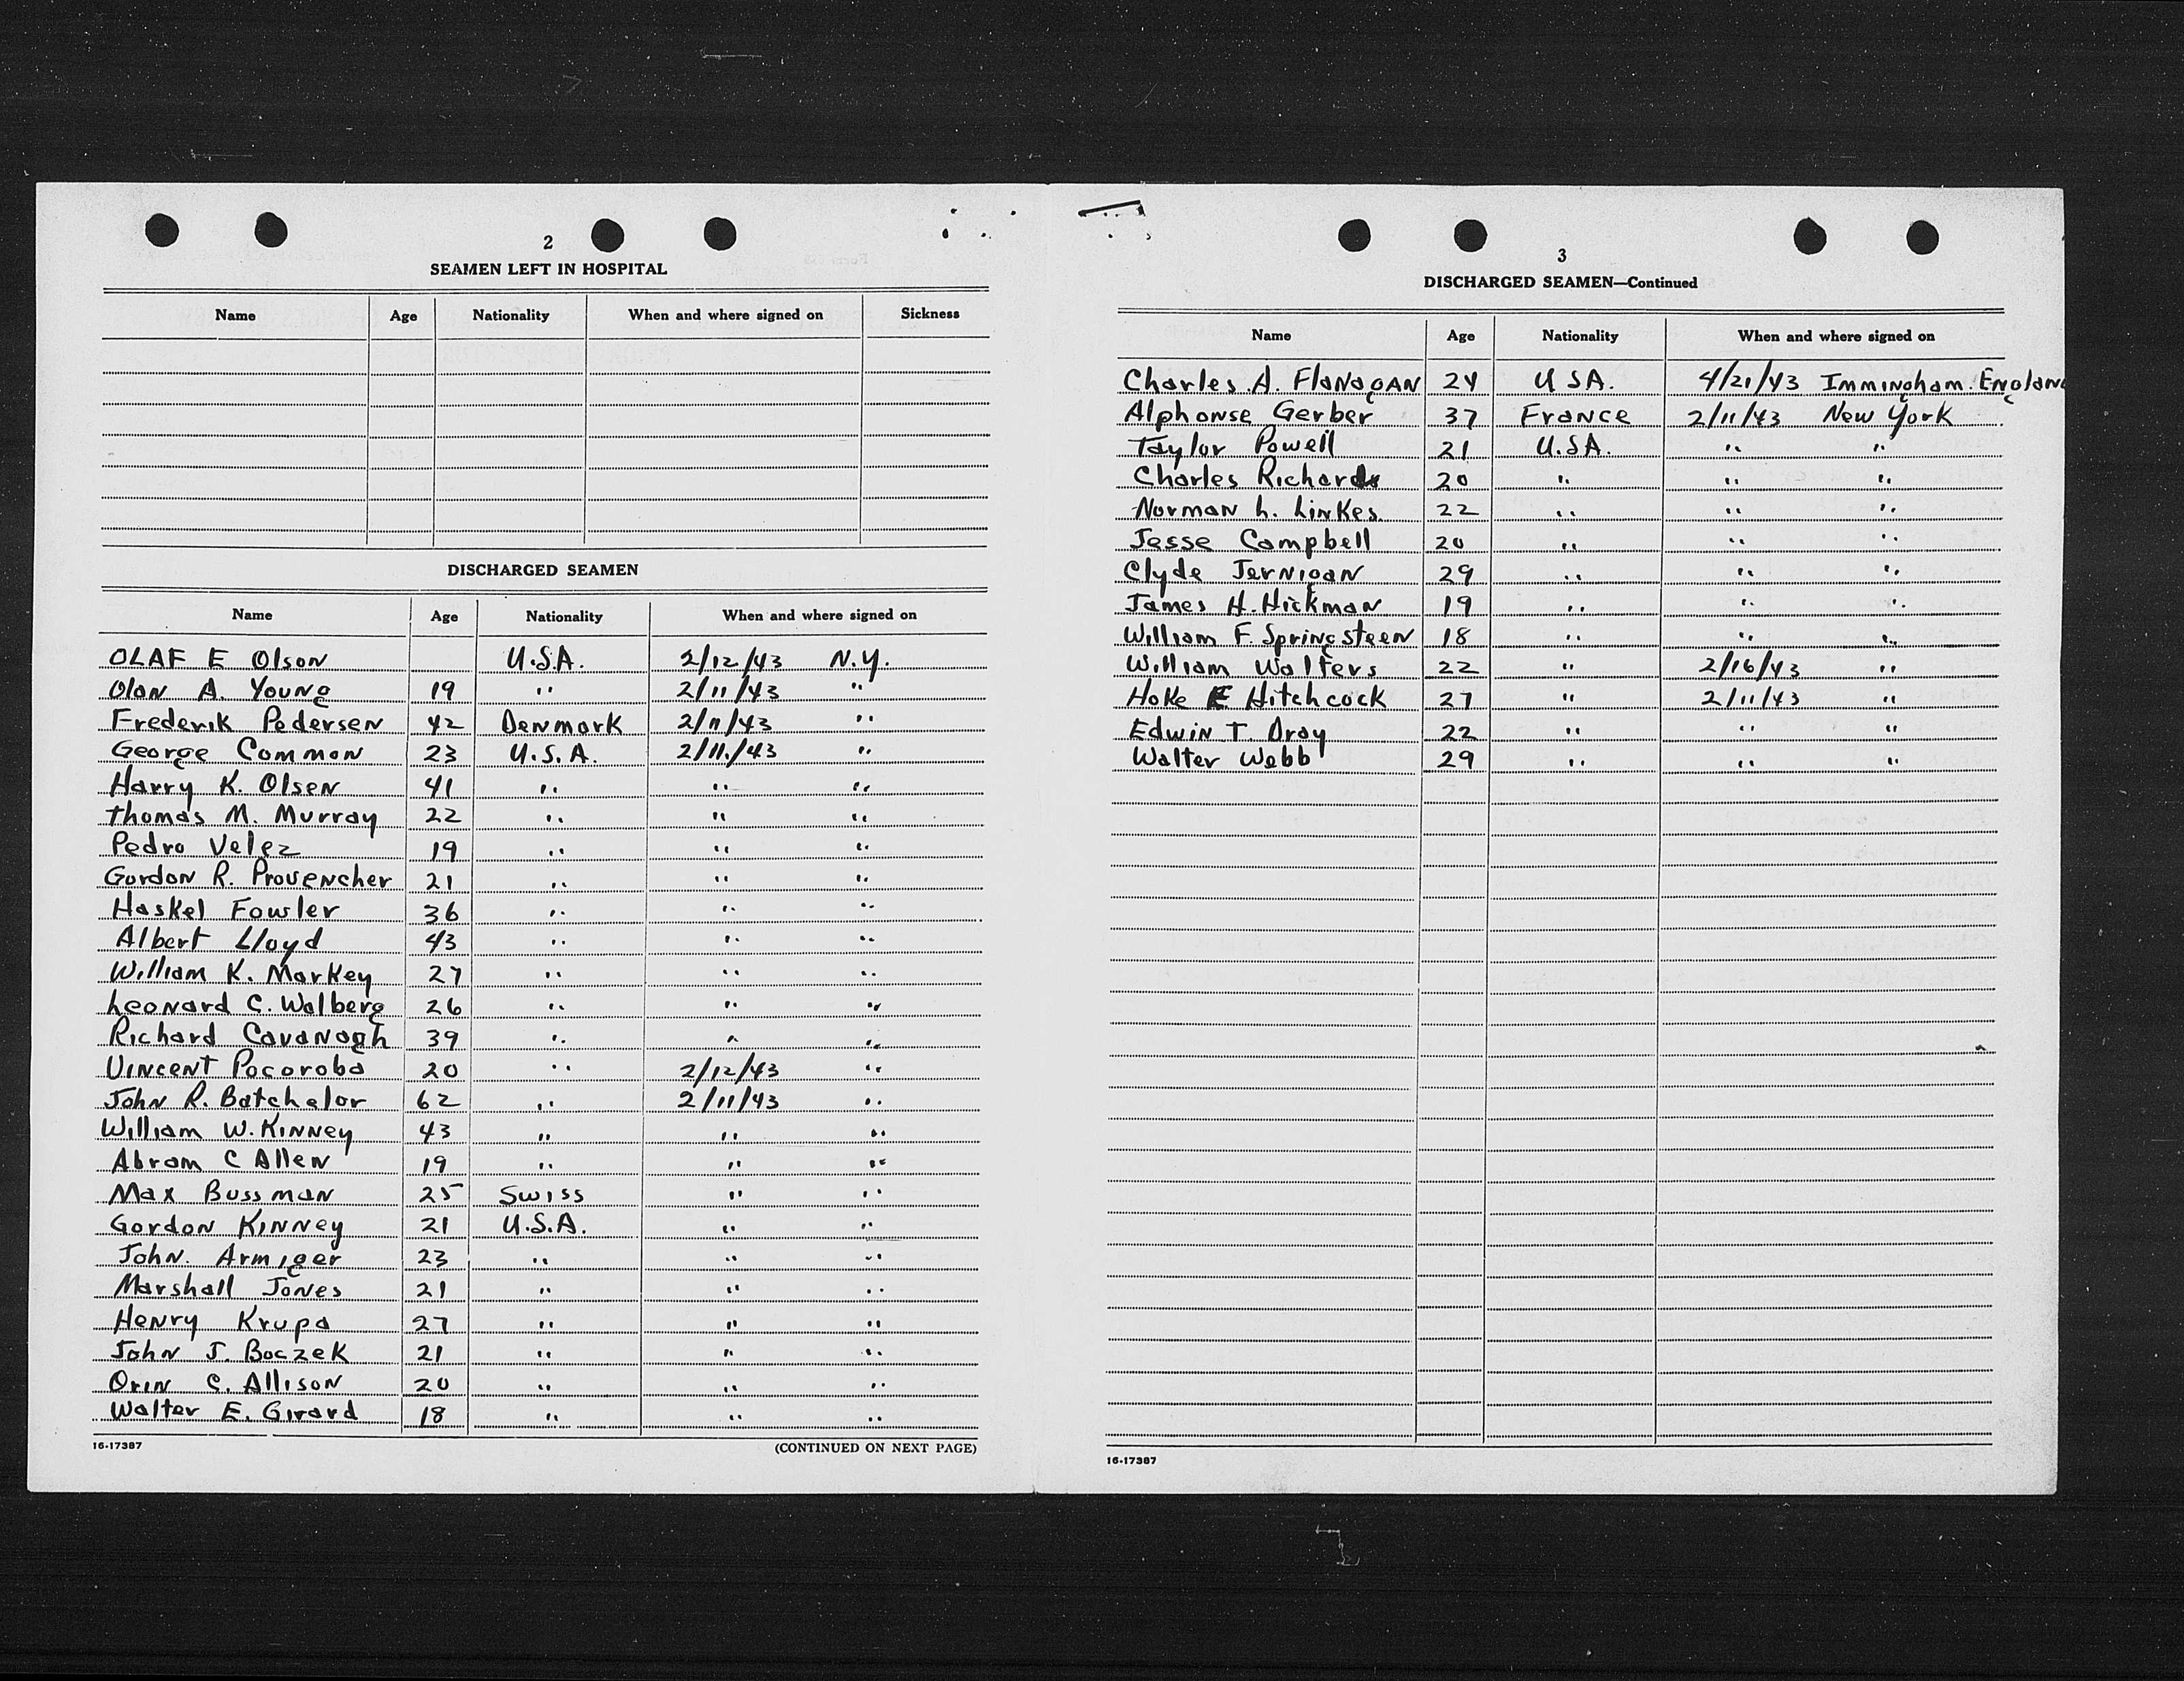 2
SEAMEN LEFT IN HOSPITAL
Name Age Nationality When and where signed on Sickness
DISCHARGED SEAMEN
Name Age Nationality When and where signed on
OLAF E Olson U.S.A. 2/12/43 N.Y.
Olan A. Young 19 " 2/11/43 "
Frederik Pedersen 42 Denmark 2/11/43 "
George Common 23 U.S.A. 2/11/43 "
Harry K. Olsen 41 " " "
Thomas M. Murray 22 " " "
Pedro Velez 19 " " "
Gordon R. Provencher 21 " " "
Haskel Fowler 36 " " "
Albert Lloyd 43 " " "
William K. Markey 27 " " "
Leonard C. Walberg 26 " " "
Richard Cavanagh 39 " " "
Vincent Pocoroba 20 " 2/12/43 "
John R. Batchelor 62 " 2/11/43 "
William W. Kinney 43 " " "
Abram C Allen 19 " " "
Max Bussman 25 Swiss " "
Gordon Kinney 21 U.S.A. " "
John. Armiger 23 " " "
Marshall Jones 21 " " "
Henry Krupa 27 " " "
John J. Boczek 21 " " "
Orin C. Allison 20 " " "
Walter E. Girard 18 " " "
16-17387 (CONTINUED ON NEXT PAGE)
3
DISCHARGED SEAMEN—Continued
Name Age Nationality When and where signed on
Charles A. Flanagan 24 U SA. 4/21/43 Immingham. England
Alphonse Gerber 37 France 2/11/43 New York
Taylor Powell 21 U.SA. " "
Charles Richards 20 " " "
Norman L. Linkes. 22 " " "
Jesse Campbell 20 " " "
Clyde Jernigan 29 " " "
James H. Hickman 19 " " "
William F. Springsteen 18 " " "
William Walters 22 " 2/16/43 "
Hoke E Hitchcock 27 " 2/11/43 "
Edwin T. Dray 22 " " "
Walter Webb 29 " " "
16-17387